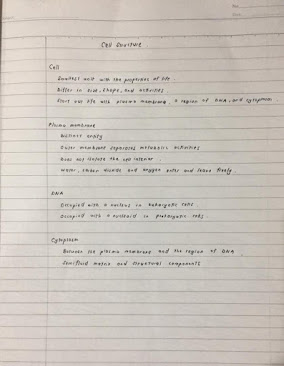 Cell Structure
Cell
Smallest unit with the properties of life.
Differ in size, shape, and activities
Start out life with plasma membrane, a region of DNA, and cytoplasm.
Plasma membrane
Distinct entity
Outer membrane separates metabolic activities
Does not isolate the cell interior
Water, carbon dioxide and oxygen enter and leave freely.
DNA
Occupied with a nucleus in eukaryotic cells.
Occupied with a nucleoid in prokaryotic cells
Cytoplasm
Between the plasma membrane and the region of DNA
Semifluid matrix and structural components